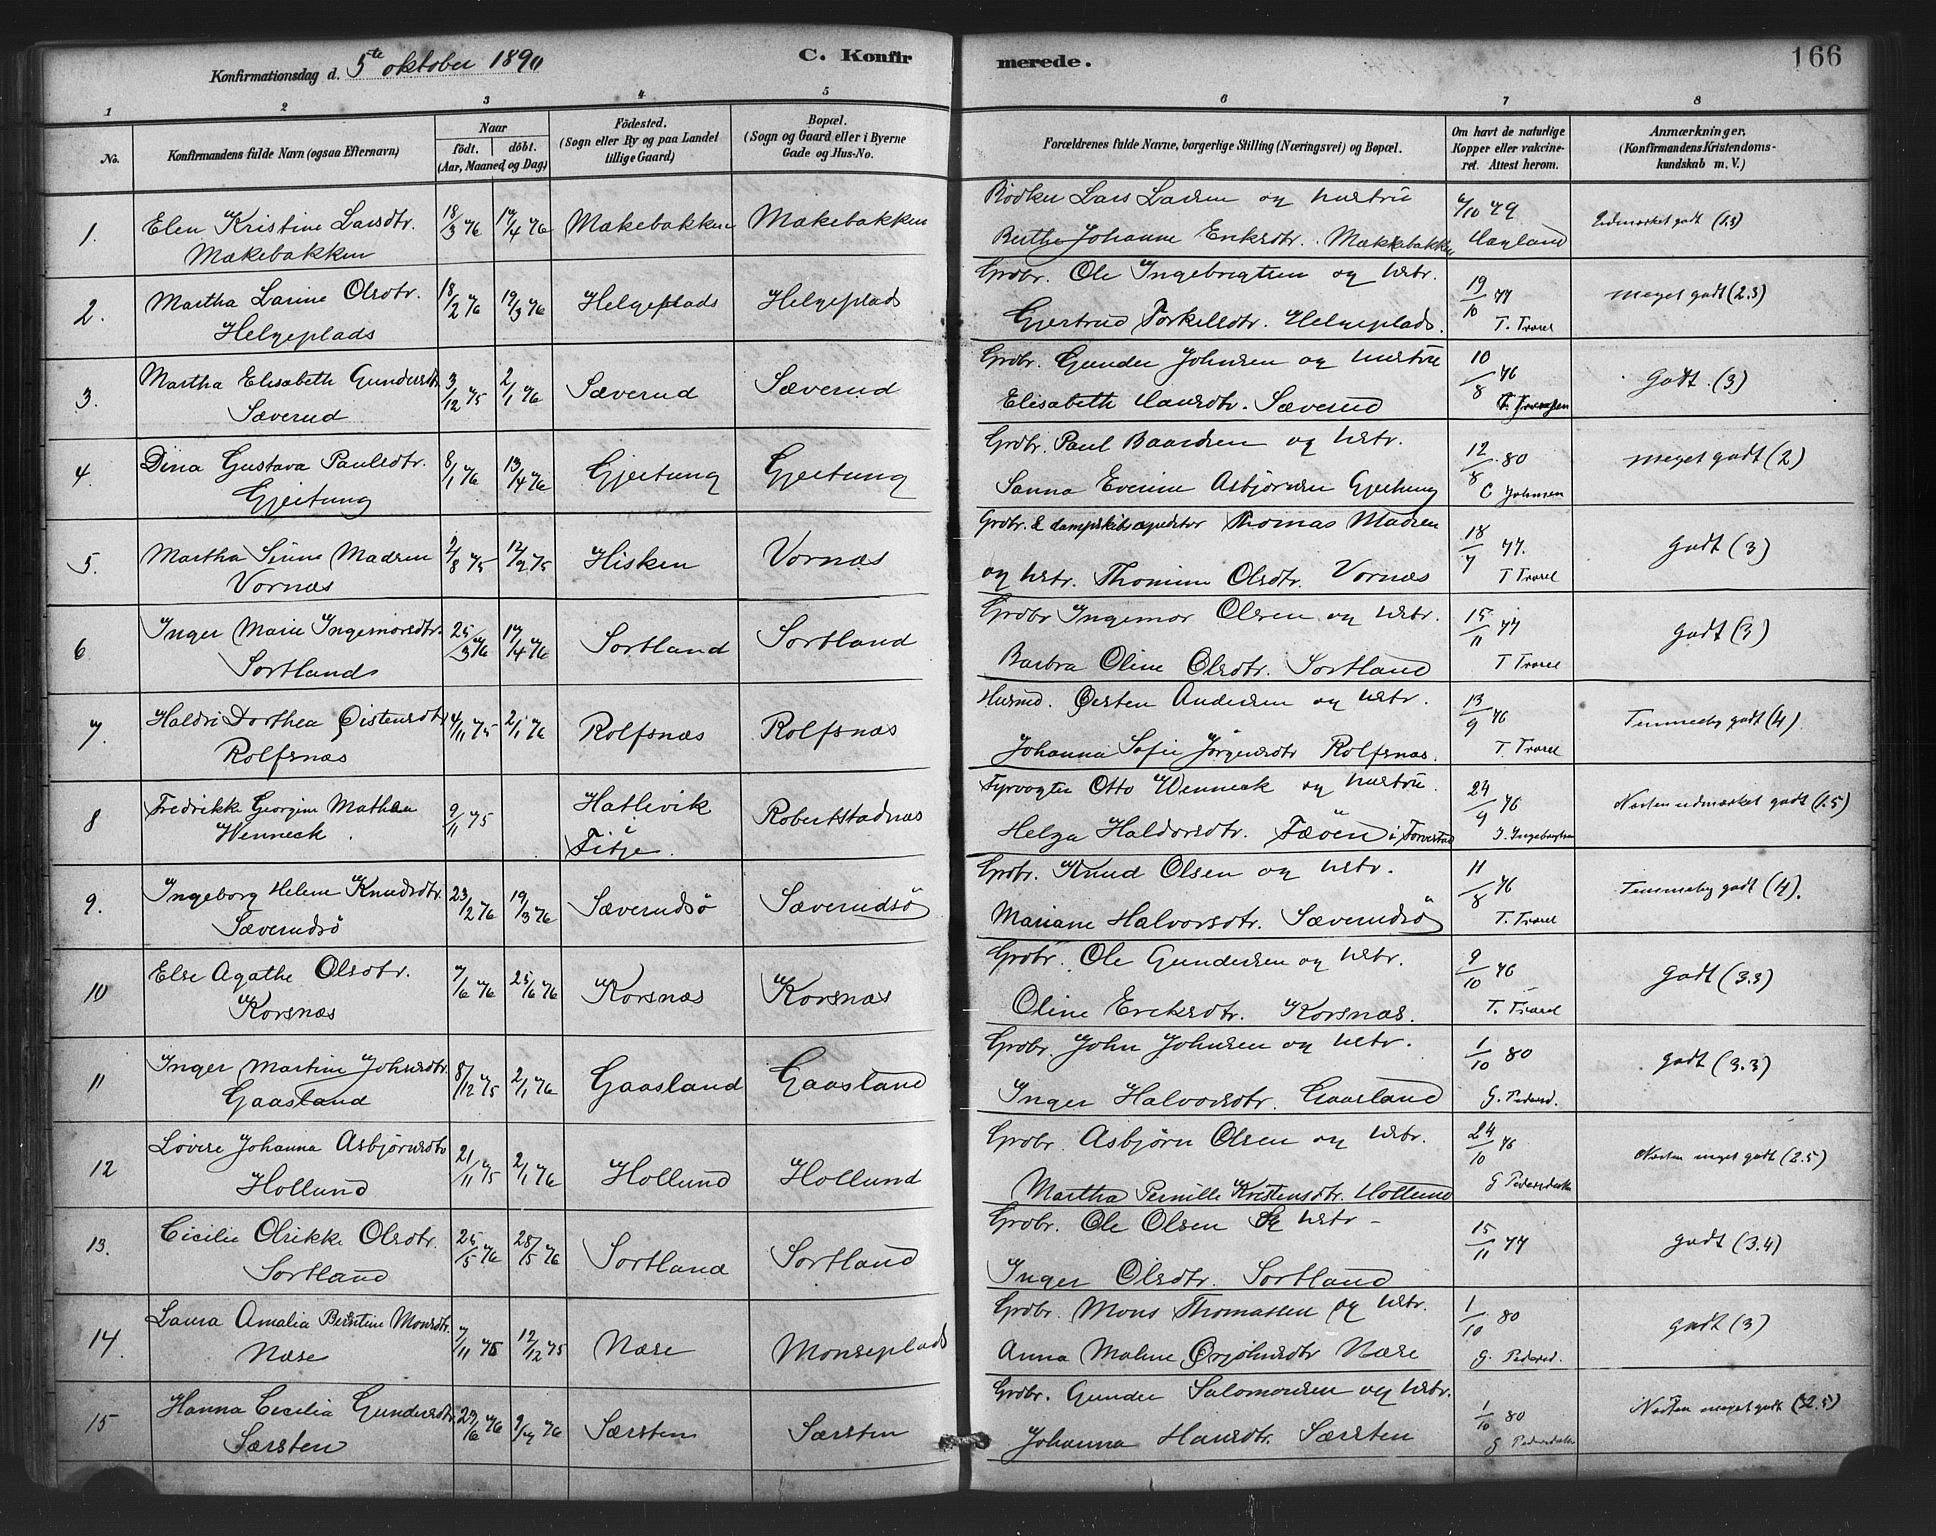 Konfirmationsdag d. 5te oktober 1890
C. Konfirmerede.
166
1 2 3 4 5 6 7 8
No.
Konfirmandens fulde Navn (ogsaa Efternavn)
Naar
födt. döbt.
(Aar, Maaned og Dag)
Födested.
(Sogn eller By og paa Landet
tillige Gaard)
Bopæl.
(Sogn og Gaard eller i Byerne
Gade og Hus-No.
Forældrenes fulde Navne, borgerlige Stilling (Næringsvei) og Bopæl.
Om havt de naturlige
Kopper eller vakcine-
ret. Attest herom.
Anmærkninger.
(Konfirmandens Kristendoms-
kundskab m. V.)
1. Elen Kristine Larsdtr. 18/3 76 17/4 76 Mækebakken Mækebakken Bödker Lars Larsen og hustru 6/10 79 Udmærket godt (1.5)
Mækebakken Berthe Johanne Eriksdtr. Mækkebakken Haaland
2. Martha Larine Olsdtr. 18/2 76 19/3 76 Helgeplads Helgeplads Grdbr. Ole Ingebrigtsen og hstr. 19/10 77 meget godt (2.3)
Helgeplads Gjertrud Torkelsdtr. Helgeplads. T. Traael
3. Martha Elisabeth Gundersdtr 3/12 75 2/1 76 Sæverud Sæverud Grdbr. Gunder Johnsen og hustru 10/8 76 Godt. (3)
Sæverud Elisabeth Hansdtr. Sæverud
4. Dina Gustava Paulsdtr. 8/1 76 13/4 76 Gjeitung Gjeitung Grdbr. Paul Baardsen og hstr. 12/8 80 meget godt (2)
Gjeitung Sanna Everine Asbjörnsen Gjeitung C Johnsen
5. Martha Sine Madsen 2/8 75 12/9 75 Hisken Vornæs Grdbr. & dampskibsexpeditör Thomas Madsen 18/7 77. godt (3)
Vornæs og hstr. Thomine Olsdtr. Vornæs T Traael
6 Inger Marie Ingemorsdtr. 25/3 76 17/4 76 Sortland Sortland Grdbr Ingemor Olsen og hstr. 15/11 77 godt (3)
Sortland Barbra Oline Olsdtr. Sortland T Traael
7. Haldri Dorthea Östensdtr 4/11 75 2/1 76 Rolfsnæs Rolfsnæs Husmd. Östen Andersen og hstr. 13/9 76 Temmelig godt (4).
Rolfsnæs Johanna Sofie Jörgensdtr Rolfsnæs. T. Traael
8 Fredrikke Georgine Mathea 9/11 75 Hatlevik Robertstadnæs Fyrvogter Otto Wenneck og hustru. 24/9 76 Næsten udmærket godt (1.5)
Wenneck. Fitje. Helga Haldorsdtr. Fæöen i Torvestad J. Ingebrigtsen
9. Ingeborg Helene Knudsdtr. 23/2 76 19/3 76 Sæverudsö Sæverudsö Grdbr. Knud Olsen og hstr. 11/8 76 Temmelig godt (4).
Sæverudsö Mariane Halvorsdtr. Sæverudsö T. Traael
10 Else Agathe Olsdtr. 7/6 76 25/6 76 Korsnæs Korsnæs Grdbr. Ole Gundersen og hstr. 9/10 76 godt (3.3)
Korsnæs Oline Eriksdtr. Korsnæs. T. Traael
11 Inger Martine Johnsdtr. 8/12 75 2/1 76 Gaasland Gaasland Grdbr. John Johnsen og hstr. 1/10 80 godt (3.3)
Gaasland Inger Halvorsdtr. Gaasland G. Pedersd.
12 Lovise Johanna Asbjörnsdtr 21/11 75 2/1 76 Hollund Hollund Grdbr. Asbjörn Olsen og hstr. 24/10 76 Næsten meget godt (2.5)
Hollund Martha Pernille Kristensdtr. Hollund G Pedersdatter
13. Cicilie Olrikke Olsdtr. 25/5 76 28/5 76 Sortland Sortland Grdbr. Ole Olsen og hstr - 15/11 77 godt (3.4)
Sortland Inger Olsdtr. Sortland
14. Laura Amalia Berntine Monsdtr. 7/11 75 12/12 75 Næse Monseplads Grdbr. Mons Thomassen og hstr. 1/10 80 godt (3)
Næse Anna Malene Örjöhnsdtr Næse G. Pedersd.
15 Hanna Cecilia Gundersdtr. 23/6 76 9/7 76 Særsten Særsten Grdbr. Gunder Salomonsen og hstr. 1/10 80 Næsten meget godt (2.5)
Særsten Johanna Hansdtr. Særsten G Pedersdatter